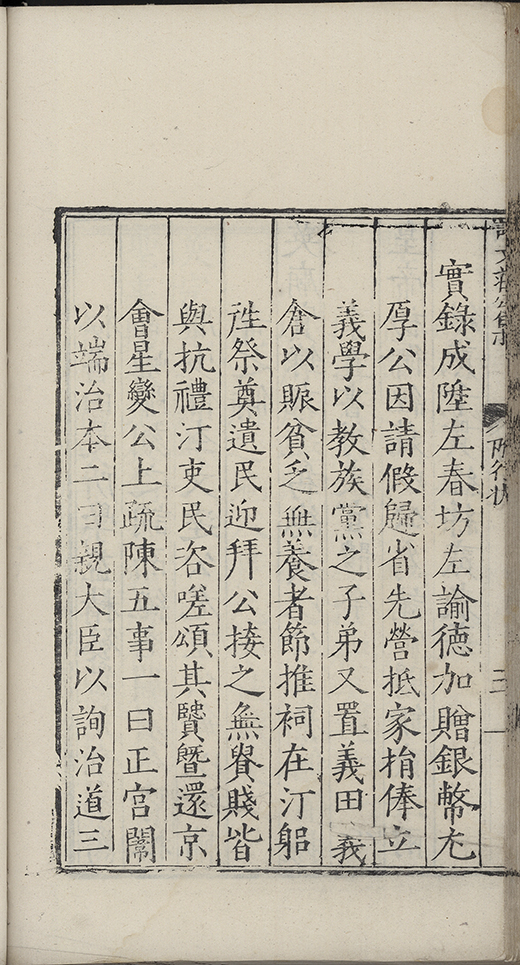 實錄成陞左春坊左諭德加贈銀幣尤
厚公因請假歸省先營抵家捐俸立
義學以教族黨之子弟又置義田義
倉以賑貧乏無養者節推祠在汀躬
徃祭奠遺民迎拜公接之無貴賤皆
與抗禮汀吏民咨嗟頌其賢曁還京
會星變公上疏陳五事一曰正宫闈
以端治本二曰親大臣以詢治道三
行狀
三